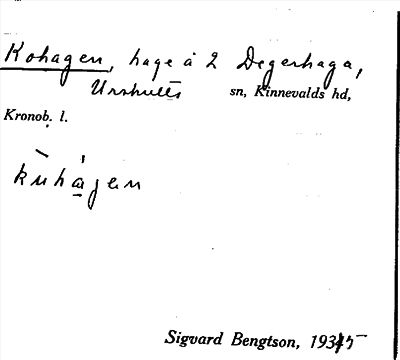 Kohagen, hage å 2 Degerhaga,
Urshults sn, Kinnevalds hd,
Kronob. l.
kuhagen
Sigvard Bengtson, 1935